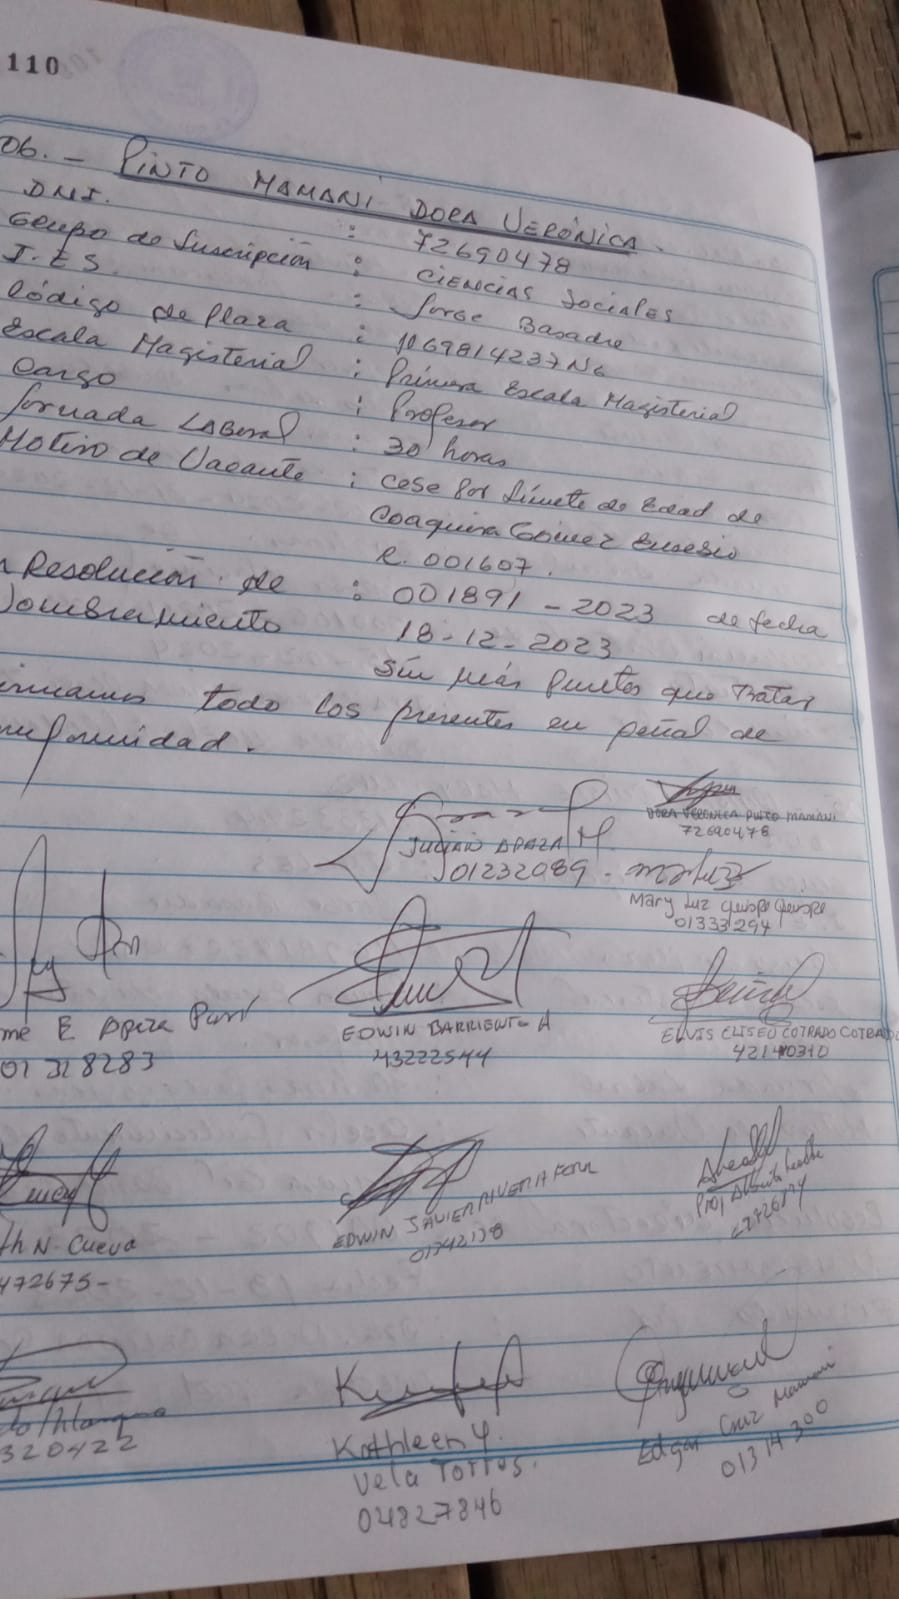 110
06. - PINTO MAMANI DORA VERÓNICA.
D.N.I. : 72690478
Grupo de Suscripción : CIENCIAS SOCIALES
I.E.S. : Jorge Basadre
Código de Plaza : 1169814237N6
Escala Magisterial : Primera Escala Magisterial
Cargo : Profesor
Jornada LABoral : 30 horas
Motivo de Vacante : cese por límete de Edad de
Coaquira Gómez Eusebio
R. 001607.
Resolución de : 001891 - 2023 de fecha
Nombramiento 18-12-2023
Sin más puntos que tratar
firmamos todo los presentes en señal de
conformidad.
DORA VERONICA PINTO MAMANI
72690478
JULIAN APAZA M
01232089.
Mary Luz Quispe Quispe
01333294
E Apaza Pari
01328283
EDWIN BARRIENTO A
43222544
ELVIS ELISEO COTRADO COTRADO
42140310
N. Cueva
472675-
EDWIN JAVIER RIVERA
01342138
Prof. Alberto
320422
Kathleen Y.
Vela Torres.
04827846
Edgar Cruz Mamani
01314300